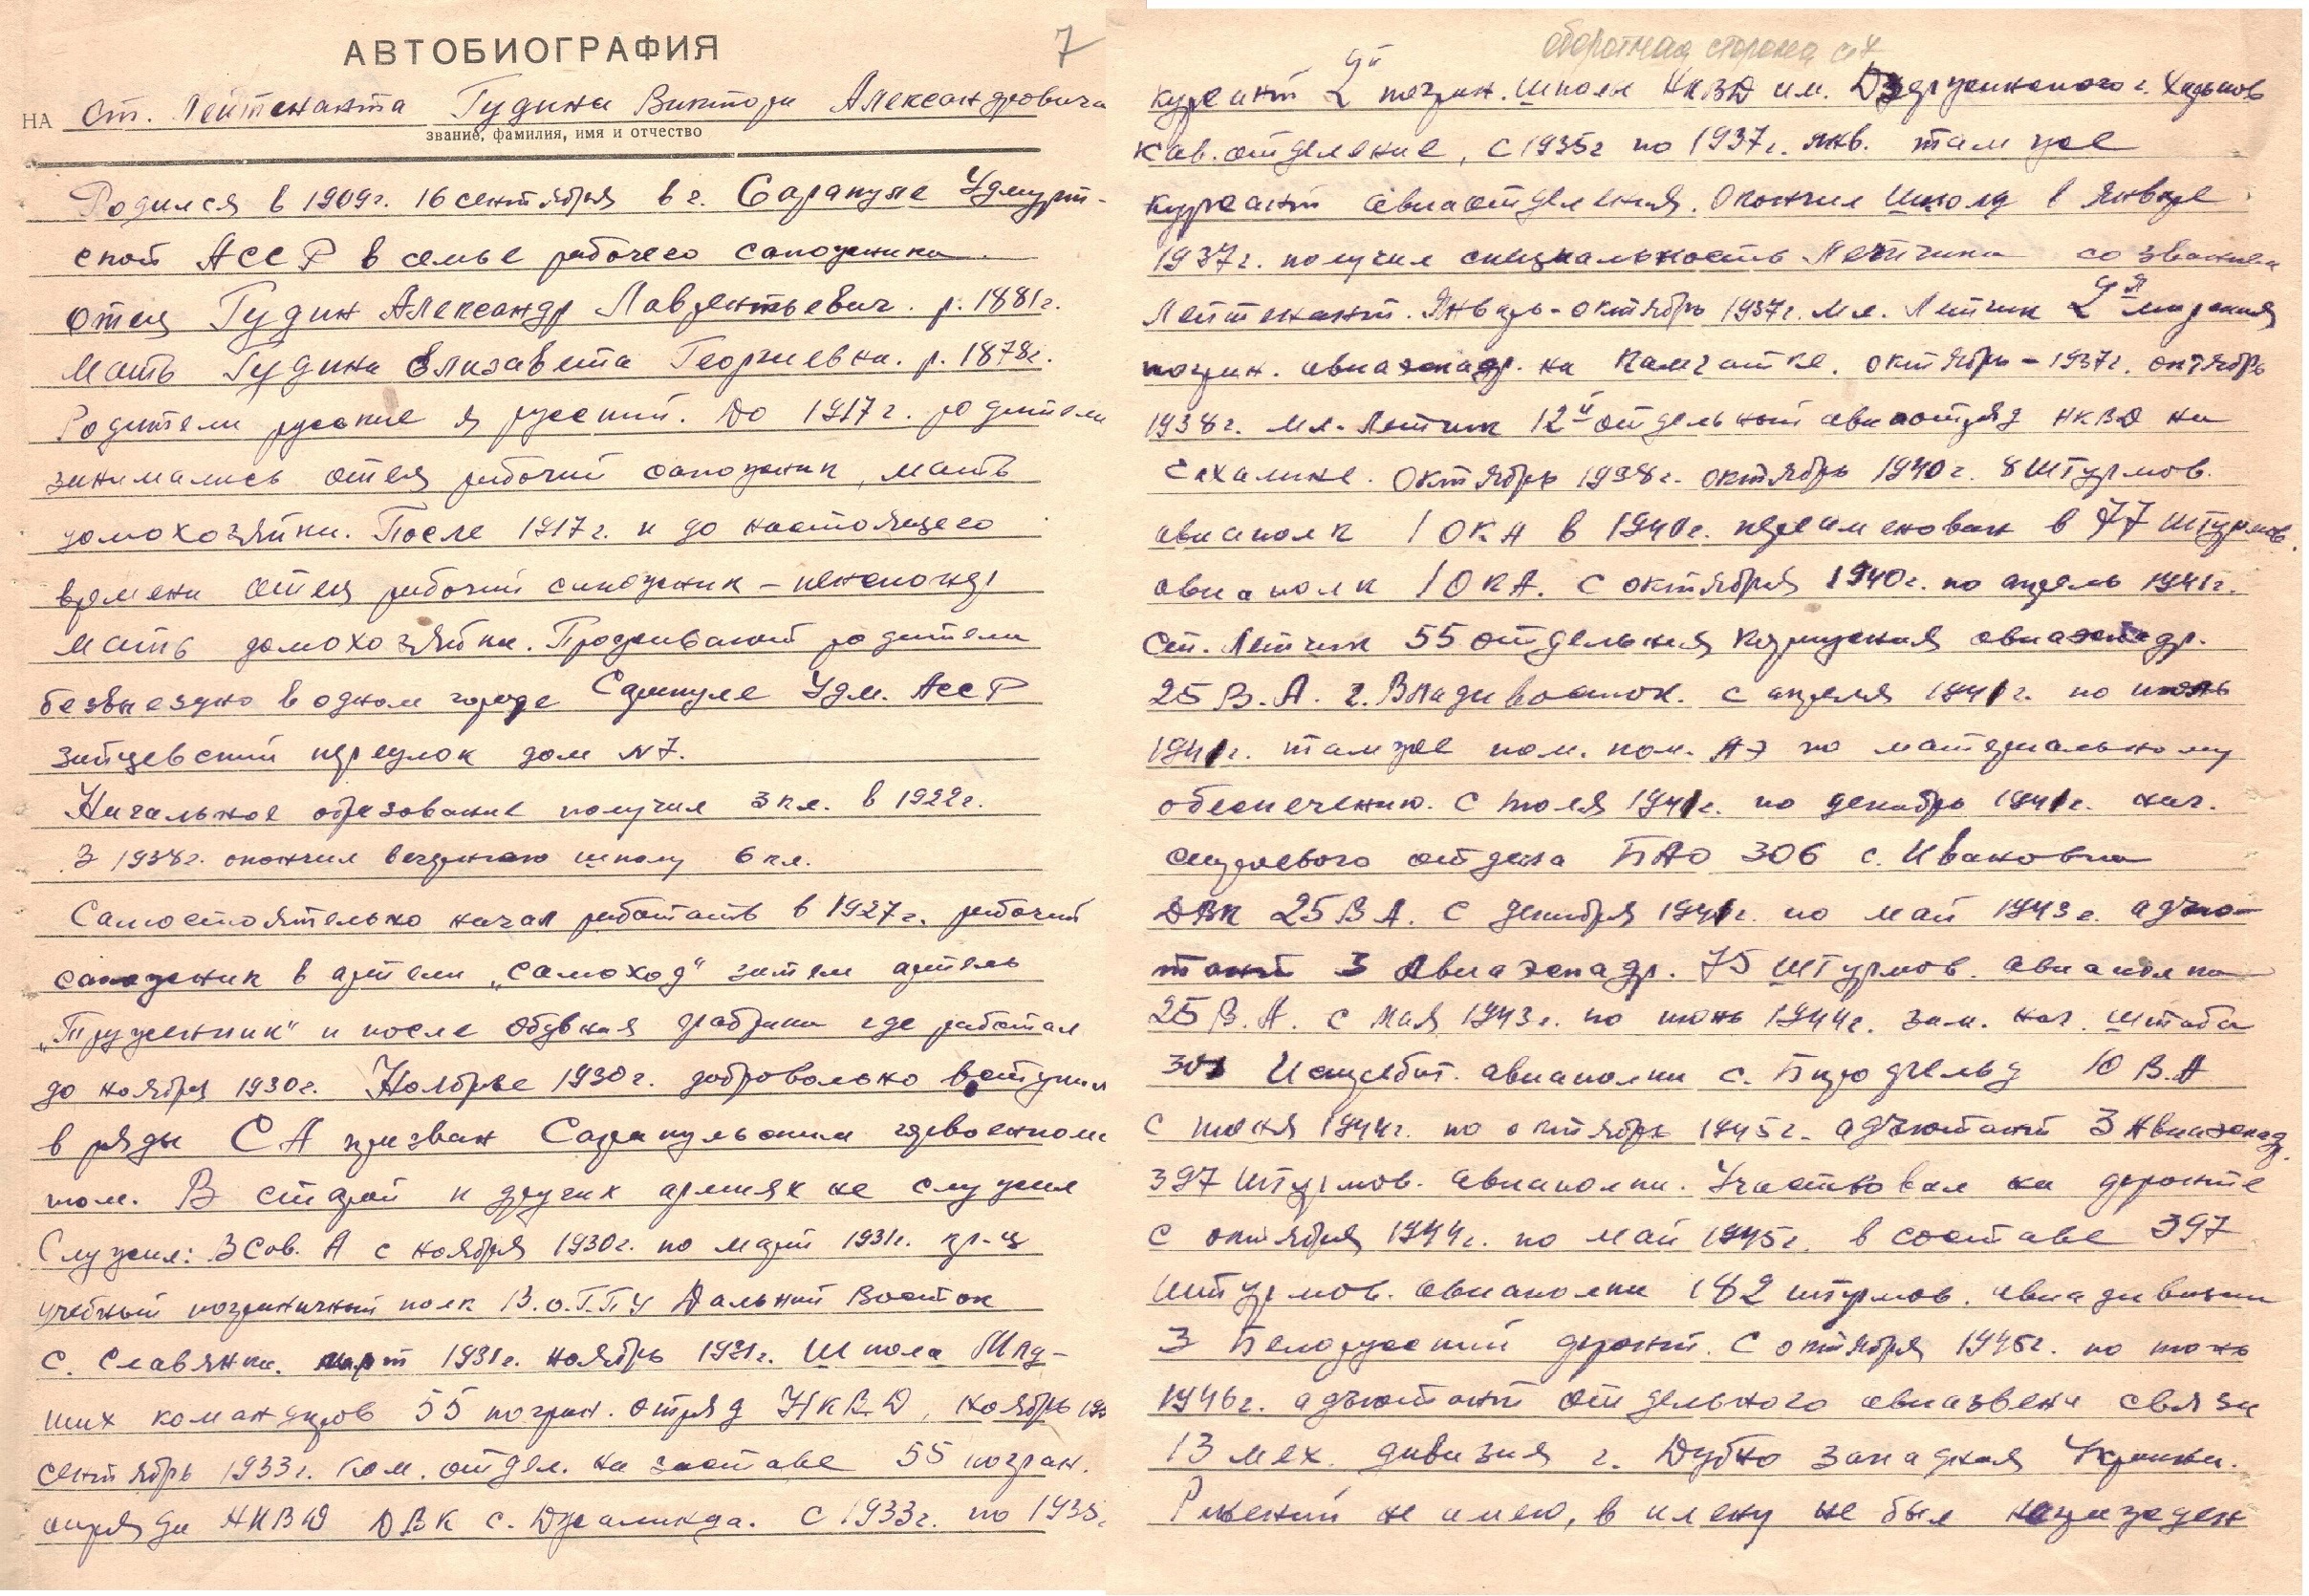 АВТОБИОГРАФИЯ
7
НА Ст. Лейтенанта Гудина Виктора Александровича
звание, фамилия, имя и отчество
Родился в 1909г. 16 сентября в г. Сарапуле Удмурт-
ской АССР в семье рабочего сапожника.
Отец Гудин Александр Лаврентьевич. р. 1881г.
Мать Гудина Елизавета Георгиевна. р. 1878г.
Родители русские я русский. До 1917г. родители
занимались отец рабочий сапожник, мать
домохозяйка. После 1917г. и до настоящего
времени отец рабочий сапожник –
мать домохозяйка. Проживают родители
безвыездно в одном городе Сарапуле Удм. АССР
Зайцевский переулок дом №7.
Начальное образование получил 3 кл. в 1922г.
В 1938г. окончил вечернюю школу 6 кл.
Самостоятельно начал работать в 1927г. рабочий
сапожник в артели „Самоход" затем артель
„Труженник" и после обувная фабрика где работал
до ноября 1930г. Ноябрье 1930г. добровольно вступил
в ряды СА призван Сарапульским горвоенкома
том. В старой и других армиях не служил
Служил: В Сов. А с ноября 1930г. по март 1931г. кр-ц
учебный пограничный полк В.О.Г.П.У Дальний Восток
с. Славянка. март 1931г. ноябрь 1931г. Школа Млд-
ших командиров 55 погран. отряд НКВД, ноябрь 193
сентябрь 1933г. ком. отдел. на заставе 55 погран.
отряда НКВД ДВК с. Джалинда. С 1933г. по 1935г
оборотная сторона л 7
курсант 2ой погран. школы НКВД им. Дзержинского г. Харьков
кав. отделение, с 1935г по 1937г. янв. там же
курсант авиаотделения. Окончил школу в январе
1937г. получил специальность Летчика со званием
Лейтенант. Январь-октябрь 1937г. Мл. Летчик 2ая морская
погран. авиаэскадр. на Камчатке. октябрь-1937г. октябрь
1938г. мл. Летчик 12й отдельный авиаотряд НКВД на
Сахалине. Октябрь 1938г. октябрь 1940г. 8 Штурмов.
авиаполк 1 ОКА в 1940г. переименован в 77 Штурмов.
авиаполк 1 ОКА. С октября 1940г. по апрель 1941г.
Ст. Летчик 55 отдельная корпусная авиаэскадр.
25 В.А. г. Владивосток. с апреля 1941г. по июль
1941г. там же пом. ком. АЭ по материальному
обеспечению. С июля 1941г. по декабрь 1941г. нач.
строевого отдела БАО 306 с. Ивановка
ДВК 25 ВА. С декабря 1941г. по май 1943г. адъю-
тант 3 Авиаэскадр. 75 Штурмов. авиаполка
25 В.А. с мая 1943г. по июнь 1944г. зам. нач. штаба
301 Истребит. авиаполка с. Бирофельд 10 В.А
С июня 1944г. по октябрь 1945г. адъютант 3 Авиаэскадр.
397 Штурмов. авиаполка. Участвовал на фронте
с октября 1944г. по май 1945г. в составе 397
штурмов. авиаполка 182 штурмов. авиадивизии
3 Белорусский фронт. С октября 1945г. по июнь
1946г. адъютант отдельного авиазвена связи
13 мех. дивизия г. Дубно западная Украина.
Ранений не имею, в плену не был награжден